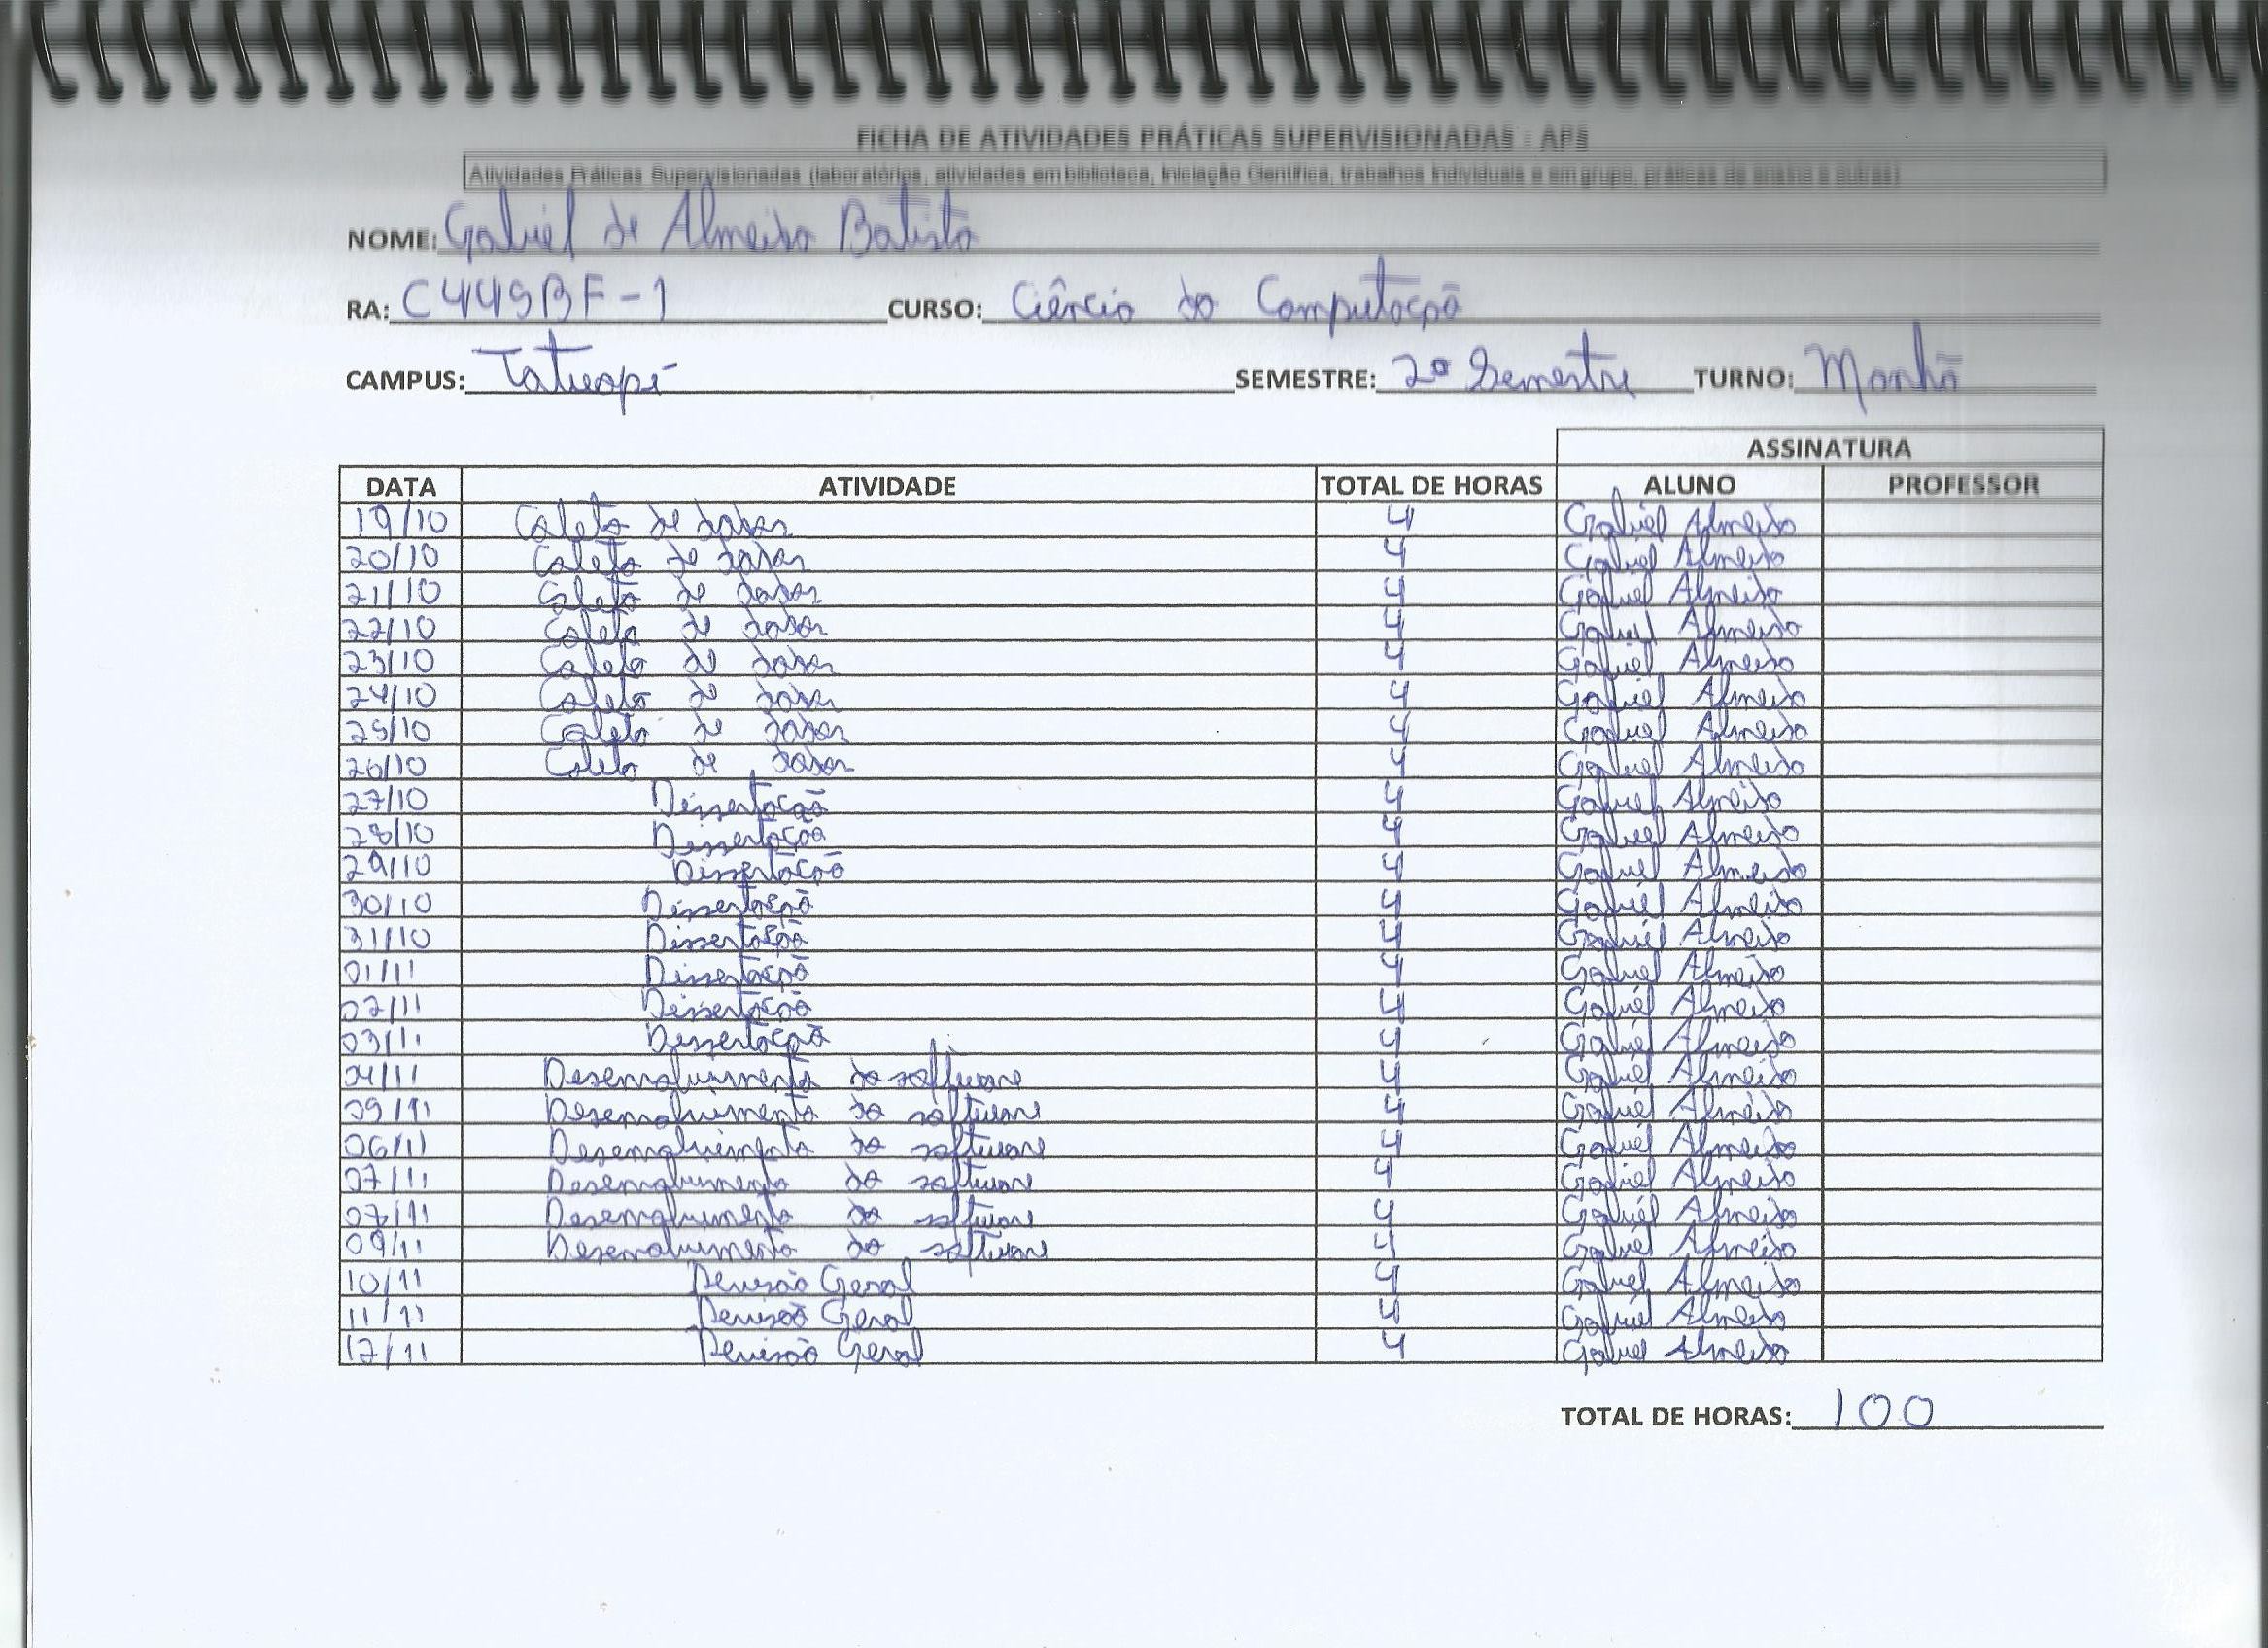 FICHA DE ATIVIDADES PRÁTICAS SUPERVISIONADAS - APS
Atividades Práticas Supervisionadas (laboratórios, atividades em biblioteca, Iniciação Científica, trabalhos individuais e em grupo, práticas de ensino e outras)
NOME: Gabriel de Almeida Batista
RA: C449BF-1 CURSO: Ciência da Computação
CAMPUS: Tatuapé SEMESTRE: 2º Semestre TURNO: Manhã
ASSINATURA
DATA ATIVIDADE TOTAL DE HORAS ALUNO PROFESSOR
19/10 Coleta de dados 4 Gabriel Almeida
20/10 Coleta de dados 4 Gabriel Almeida
21/10 Coleta de dados 4 Gabriel Almeida
22/10 Coleta de dados 4 Gabriel Almeida
23/10 Coleta de dados 4 Gabriel Almeida
24/10 Coleta de dados 4 Gabriel Almeida
25/10 Coleta de dados 4 Gabriel Almeida
26/10 Coleta de dados 4 Gabriel Almeida
27/10 Dissertação 4 Gabriel Almeida
28/10 Dissertação 4 Gabriel Almeida
29/10 Dissertação 4 Gabriel Almeida
30/10 Dissertação 4 Gabriel Almeida
31/10 Dissertação 4 Gabriel Almeida
01/11 Dissertação 4 Gabriel Almeida
02/11 Dissertação 4 Gabriel Almeida
03/11 Dissertação 4 Gabriel Almeida
04/11 Desenvolvimento do software 4 Gabriel Almeida
05/11 Desenvolvimento do software 4 Gabriel Almeida
06/11 Desenvolvimento do software 4 Gabriel Almeida
07/11 Desenvolvimento do software 4 Gabriel Almeida
Desenvolvimento do software 4 Gabriel Almeida
09/11 Desenvolvimento do software 4 Gabriel Almeida
10/11 Revisão Geral 4 Gabriel Almeida
11/11 Revisão Geral 4 Gabriel Almeida
12/11 Revisão Geral 4 Gabriel Almeida
TOTAL DE HORAS: 100